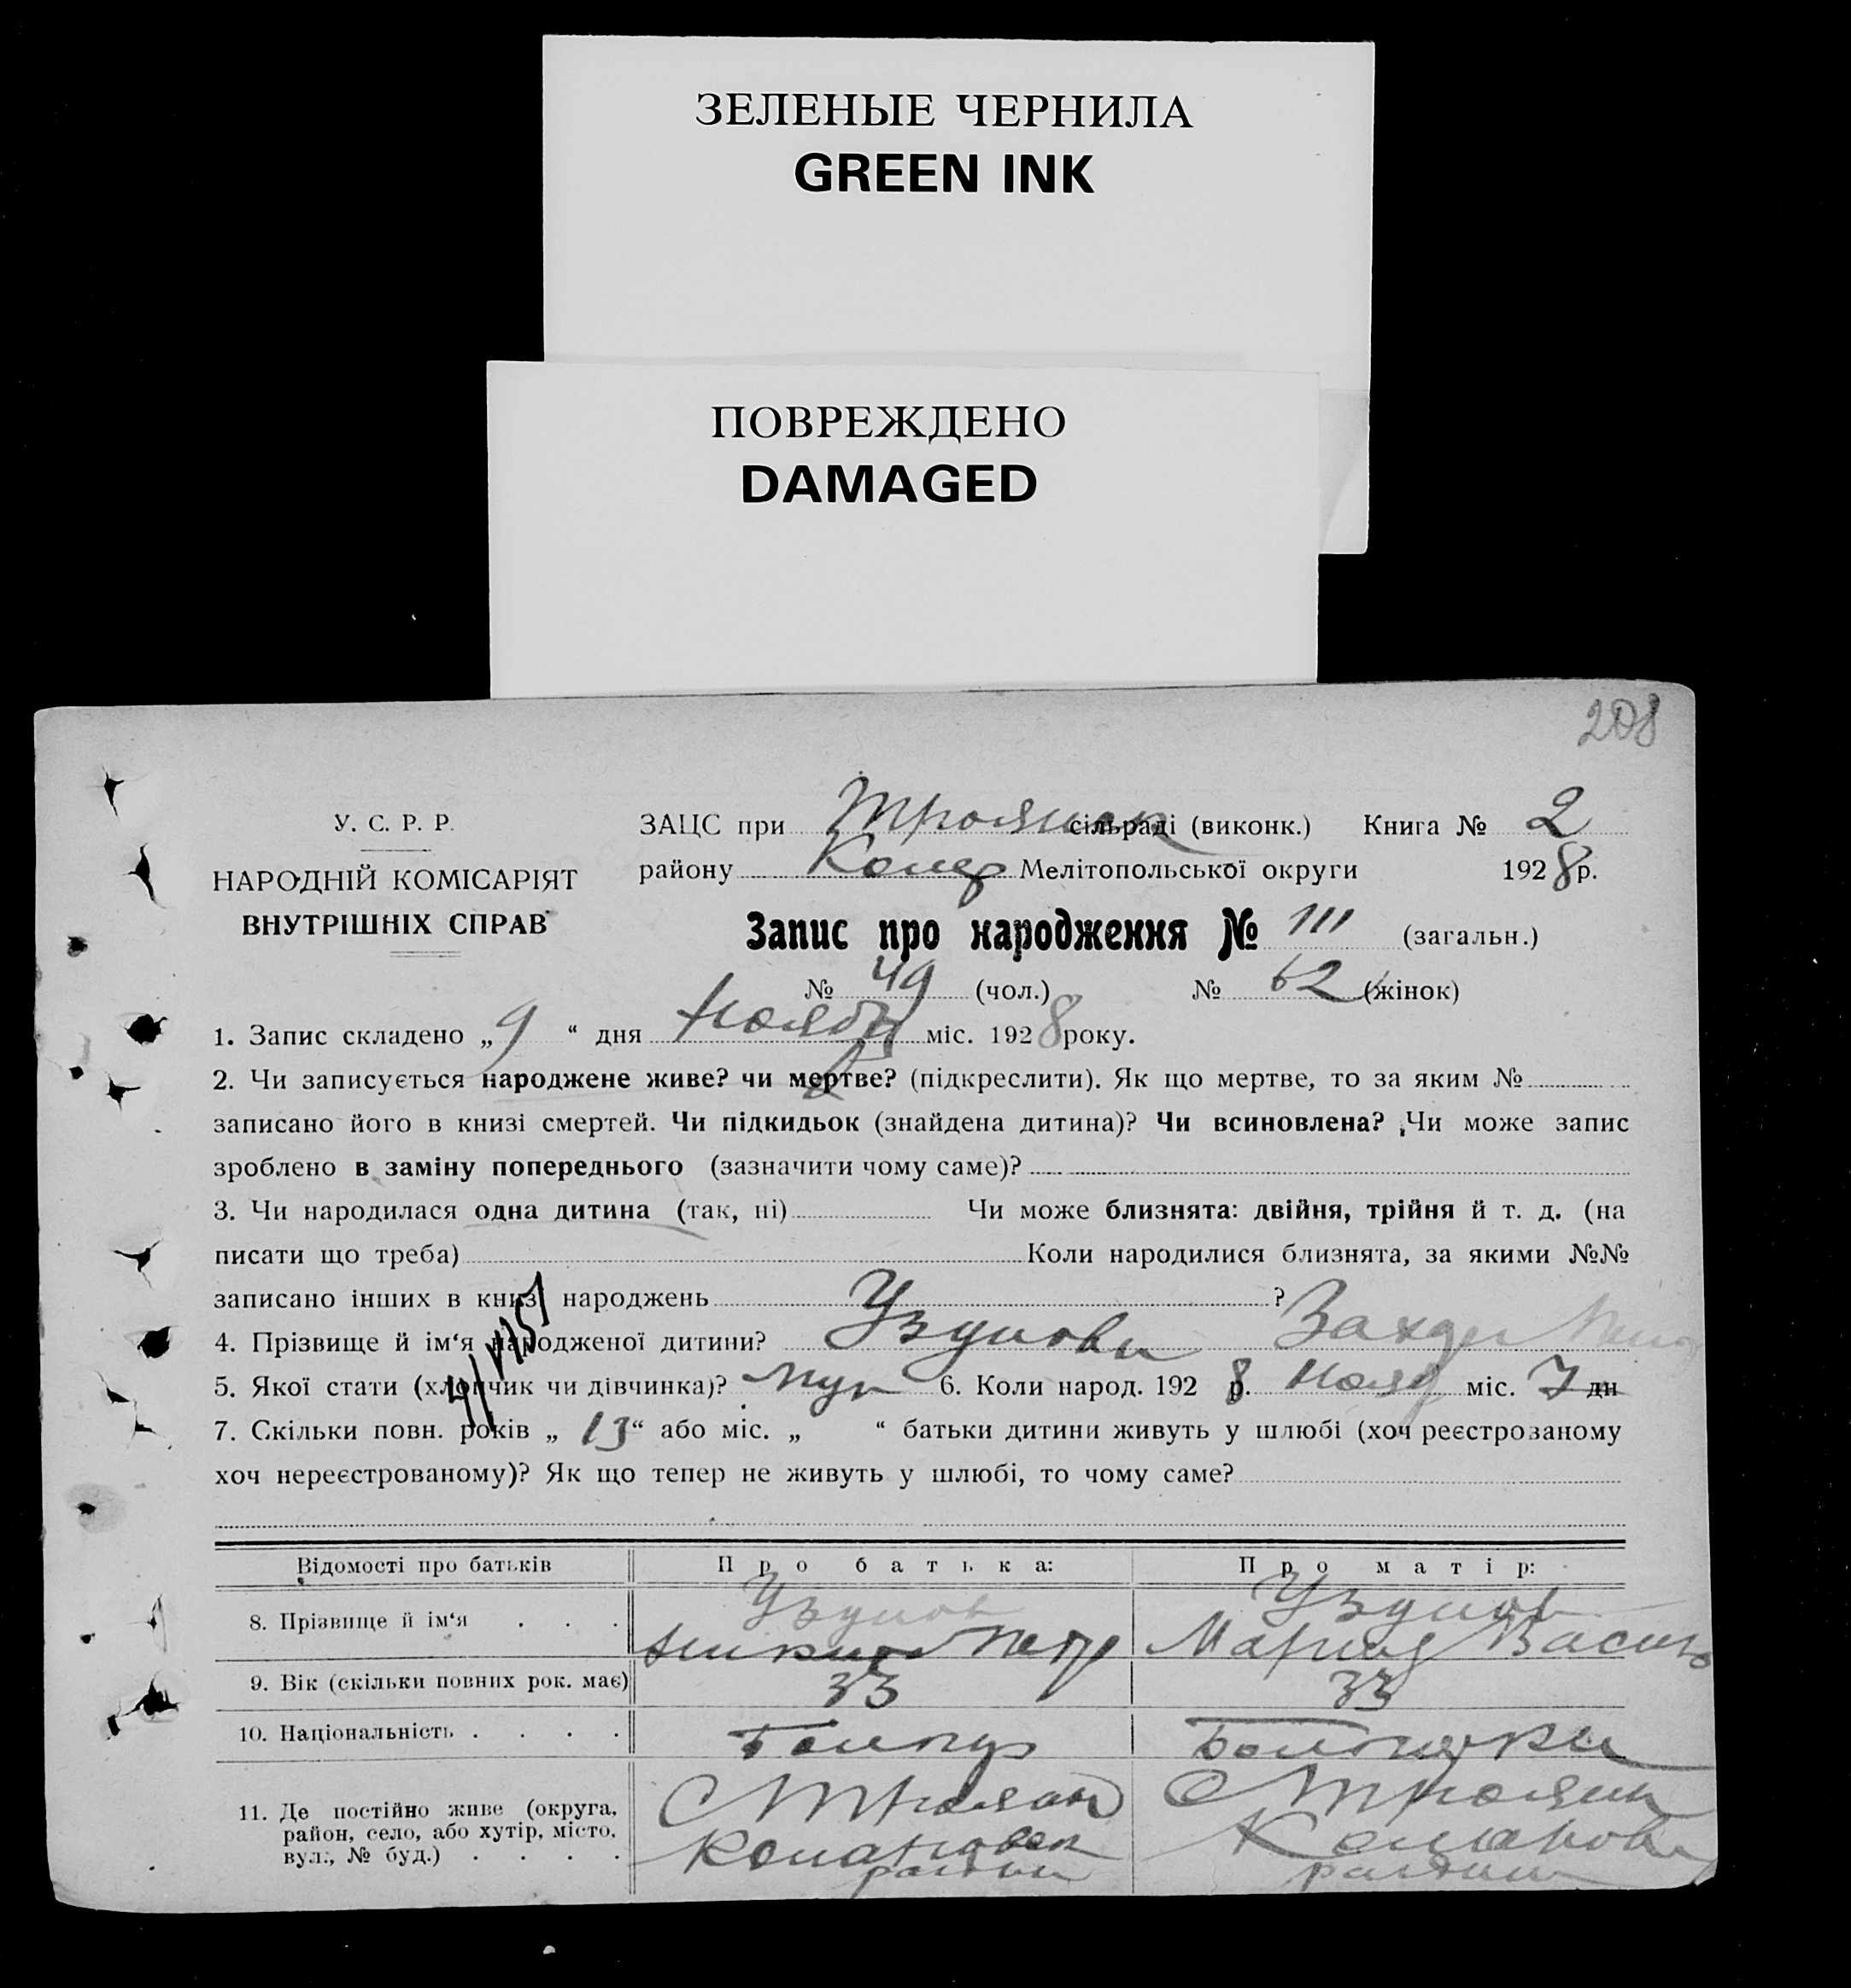 ЗЕЛЕНЫЕ ЧЕРНИЛА
GREEN INK
ПОВРЕЖДЕНО
DAMAGED
208
У. С. Р. Р.
НАРОДНІЙ КОМІСАРІЯТ
ВНУТРІШНІХ СПРАВ
ЗАЦС при Троянск сільраді (виконк.) Книга № 2
району Мелітопольської округи 1928 р.
Запис про народження № 111 (загальн.)
№ 49 (чол.) № 62 (жінок)
1. Запис складено „9“ дня Ноября міс. 1928 року.
2. Чи записується народжене живе? чи мертве? (підкреслити). Як що мертве, то за яким №
записано його в книзі смертей. Чи підкидьок (знайдена дитина)? Чи всиновлена? Чи може запис
зроблено в заміну попереднього (зазначити чому саме)?
3. Чи народилася одна дитина (так, ні) Чи може близнята: двійня, трійня й т. д. (на
писати що треба) Коли народилися близнята, за якими №№
записано інших в книзі народжень ?
4. Прізвище й ім‘я народженої дитини? Узунов
5. Якої стати (хлопчик чи дівчинка)? Муж 6. Коли народ. 1928 р. Нояб міс. 7 дн
7. Скільки повн. років „13“ або міс. „ “ батьки дитини живуть у шлюбі (хоч реєстрозаному
хоч нереєстрованому)? Як що тепер не живуть у шлюбі, то чому саме?
Відомості про батьків Про батька: Про матір:
8. Прізвище й ім‘я . . . Узунов Петр Узунов Мария Васил
9. Вік (скільки повних рок. має) 33 33
10. Національність . . . . Болгар Болгарка
11. Де постійно живе (округа,
район, село, або хутір, місто,
вул., № буд.) . . . .
С Троян
район
С Троянк
район